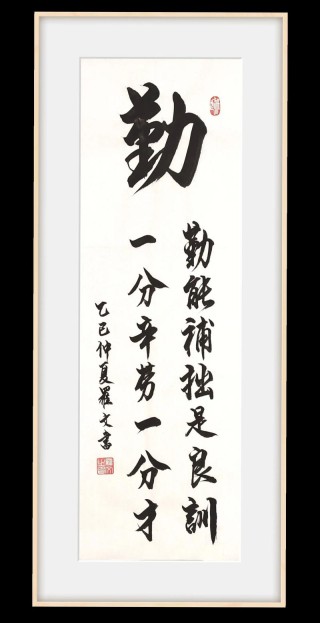 勤
勤能補拙是良訓
一分辛勞一分才
乙巳仲夏羅文書